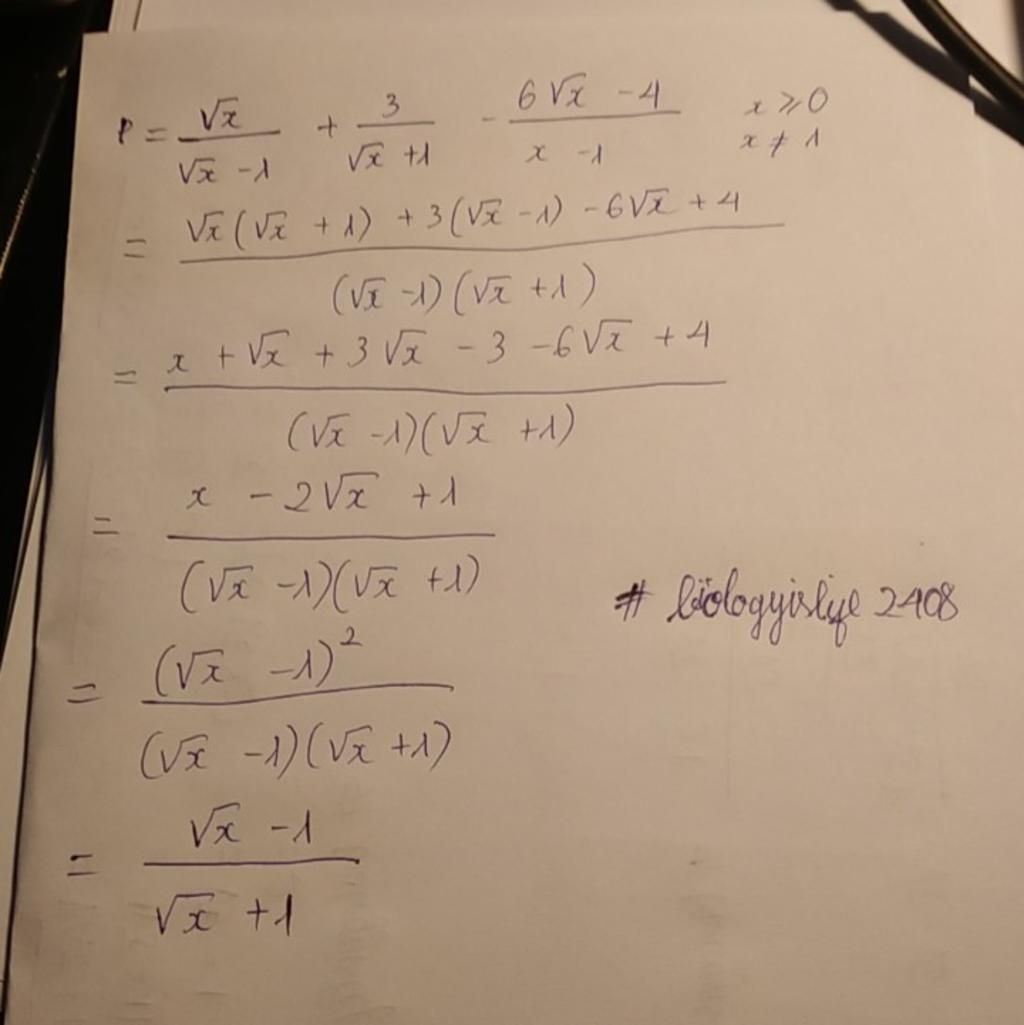 P = √x/(√x - 1) + 3/(√x + 1) - (6√x - 4)/(x - 1) x ⩾ 0 x ≠ 1
= (√x(√x + 1) + 3(√x - 1) - 6√x + 4)/((√x - 1)(√x + 1))
= (x + √x + 3√x - 3 - 6√x + 4)/((√x - 1)(√x + 1))
= (x - 2√x + 1)/((√x - 1)(√x + 1))
# biologyislife 2408
= (√x - 1)²/((√x - 1)(√x + 1))
= (√x - 1)/(√x + 1)